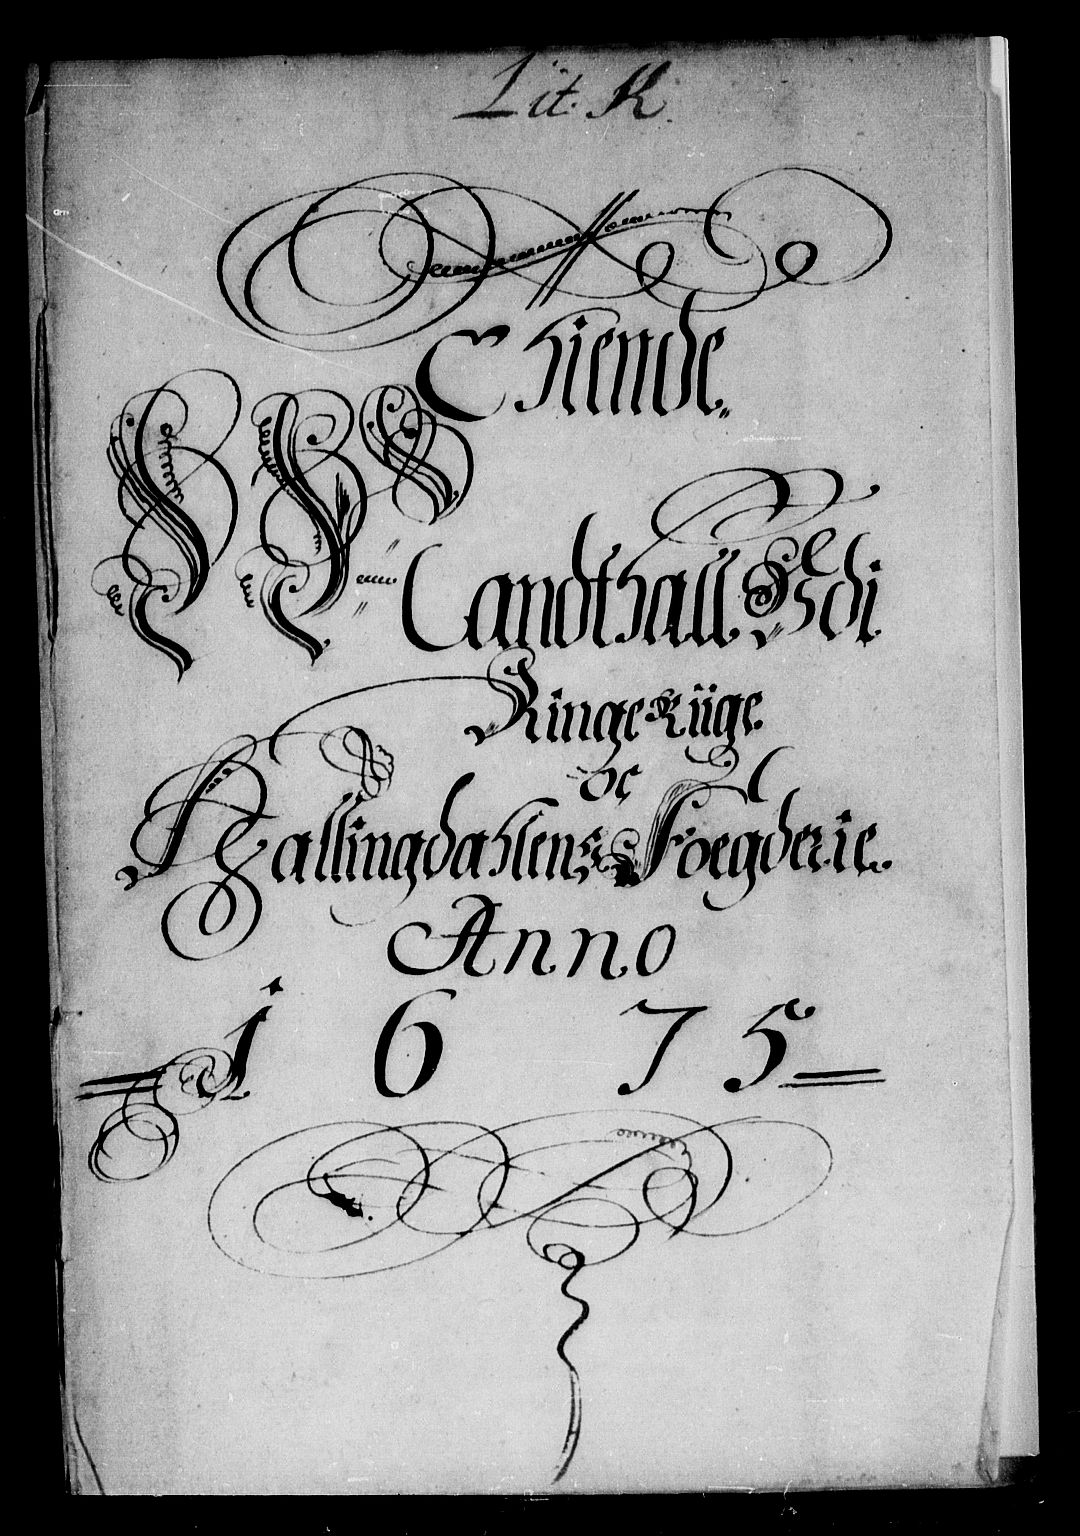 Lit. K.
Thiende
Mandthall Udi
Ringe Riige
oc
Hallingdahlens Foegderie.
Anno
1675